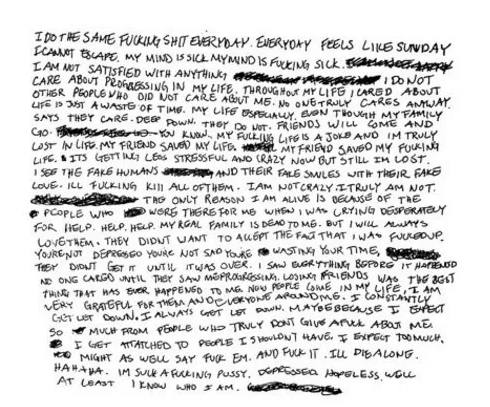 I DO THE SAME FUCKING SHIT EVERYDAY. EVERYDAY FEELS LIKE SUNDAY
I CANNOT ESCAPE. MY MIND IS SICK MY MIND IS FUCKING SICK.
I AM NOT SATISFIED WITH ANYTHING I DO NOT
CARE ABOUT PROGRESSING IN MY LIFE. THROUGHOUT MY LIFE I CARED ABOUT
OTHER PEOPLE WHO DID NOT CARE ABOUT ME. NO ONE TRULY CARES ANYWAY.
LIFE IS JUST A WASTE OF TIME. MY LIFE ESPECIALLY. EVEN THOUGH MY FAMILY
SAYS THEY CARE. DEEP DOWN. THEY DO NOT. FRIENDS WILL COME AND
GO. YOU KNOW. MY FUCKING LIFE IS A JOKE AND IM TRULY
LOST IN LIFE. MY FRIEND SAVED MY LIFE. MY FRIEND SAVED MY FUCKING
LIFE. & ITS GETTING LESS STRESSFUL AND CRAZY NOW BUT STILL IM LOST.
I SEE THE FAKE HUMANS AND THEIR FAKE SMILES WITH THEIR FAKE
LOVE. ILL FUCKING KILL ALL OF THEM. I AM NOT CRAZY. I TRULY AM NOT.
THE ONLY REASON I AM ALIVE IS BECAUSE OF THE
PEOPLE WHO WERE THERE FOR ME WHEN I WAS CRYING DESPERATELY
FOR HELP. HELP. HELP. MY REAL FAMILY IS DEAD TO ME. BUT I WILL ALWAYS
LOVE THEM. THEY DIDNT WANT TO ACCEPT THE FACT THAT I WAS FUCKED UP.
YOURE NOT DEPRESSED YOURE NOT SAD YOURE WASTING YOUR TIME,
THEY DIDNT GET IT UNTIL IT WAS OVER. I SAW EVERYTHING BEFORE IT HAPPENED
NO ONE CARED UNTIL THEY SAW ME PROGRESSING. LOSING FRIENDS WAS THE BEST
THING THAT HAS EVER HAPPENED TO ME. NOW PEOPLE COME IN MY LIFE, I AM
VERY GRATEFUL FOR THEM AND EVERYONE AROUND ME. I CONSTANTLY
GET LET DOWN. I ALWAYS GET LET DOWN. MAYBE BECAUSE I EXPECT
SO MUCH FROM PEOPLE WHO TRULY DONT GIVE A FUCK ABOUT ME.
I GET ATTACHED TO PEOPLE I SHOULDN'T HAVE, I EXPECT TOO MUCH,
MIGHT AS WELL SAY FUCK EM. AND FUCK IT. ILL DIE ALONE.
HAHAHA. IM SUCH A FUCKING PUSSY. DEPRESSED HOPELESS. WELL
AT LEAST I KNOW WHO I AM.